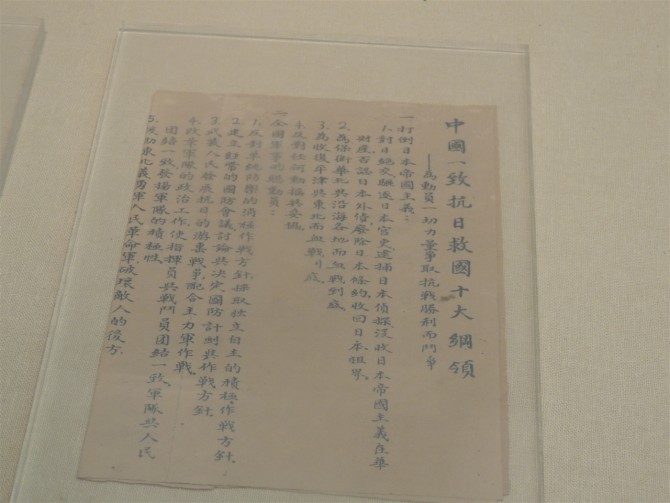 中國一致抗日救國十大綱領
——為動員一切力量爭取抗戰勝利而鬥爭
一、打倒日本帝國主義：
1.對日絕交驅逐日本官吏逮捕日本偵探沒收日本帝國主義在華
財產否認日本外債廢除日本條約，收回日本租界，
2.為保衛華北與沿海各地而血戰到底
3.為收復平津與東北而血戰到底
4.反對任何動搖與妥協
二、全國軍事的總動員：
1.反對單純防禦的消極作戰方針採取獨立自主的積極作戰方針，
2.建立經常的國防會議討論與決定國防計劃與作戰方針，
3.武裝人民發展抗日的游擊戰爭，配合主力軍作戰，
4.改革軍隊的政治工作，使指揮員與戰鬥員團結一致，軍隊與人民
團結一致發揚軍隊的積極性，
5.援助東北義勇軍人民革命軍破壞敵人的後方，